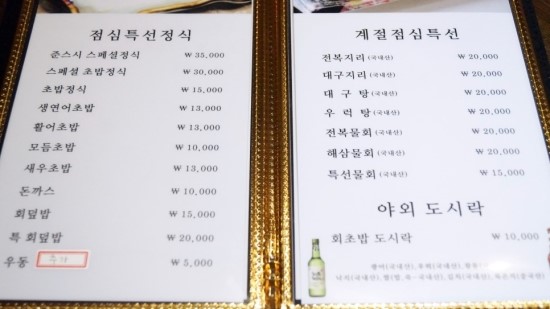 점심특선정식
준스시 스페셜정식 ₩ 35,000
스페셜 초밥정식 ₩ 30,000
초밥정식 ₩ 15,000
생연어초밥 ₩ 13,000
활어초밥 ₩ 13,000
모듬초밥 ₩ 10,000
새우초밥 ₩ 13,000
돈까스 ₩ 10,000
회덮밥 ₩ 15,000
특 회덮밥 ₩ 20,000
우동 ₩ 5,000
계절점심특선
전복지리(국내산) ₩ 20,000
대구지리(국내산) ₩ 20,000
대 구 탕(국내산) ₩ 20,000
우 럭 탕(국내산) ₩ 20,000
전복물회(국내산) ₩ 20,000
해삼물회(국내산) ₩ 20,000
특선물회(국내산) ₩ 15,000
야외 도시락
회초밥 도시락 ₩ 10,000
광어(국내산), 우럭(국내산),
낙지(국내산), 쌀(밥, 죽-국내산), 김치(국내산),